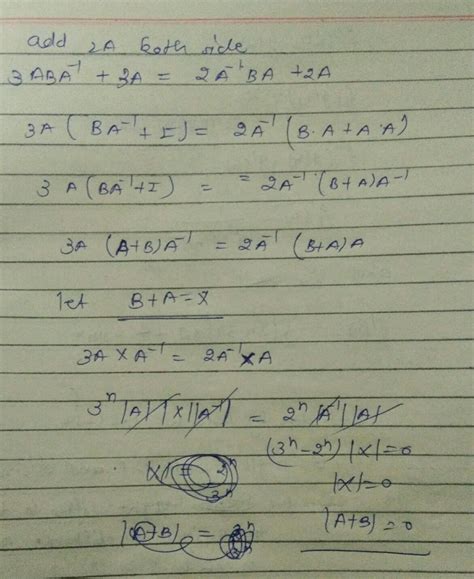 add 2A both side
3ABA⁻¹ + 3A = 2A⁻¹BA + 2A
3A ( BA⁻¹ + I ) = 2A⁻¹ ( B·A + A·A )
3 A ( BA⁻¹ + I ) = = 2A⁻¹ (B+A)A⁻¹
3A (A+B)A⁻¹ = 2A⁻¹ (B+A)A
let B+A = X
3A X A⁻¹ = 2A⁻¹ X A
3ⁿ |A| |X| |A⁻¹| = 2ⁿ |A⁻¹| |A|
(3ⁿ - 2ⁿ) |X| = 0
|X| = 2ⁿ 3ⁿ
|X| = 0
|(A+B)| =
|A+B| = 0